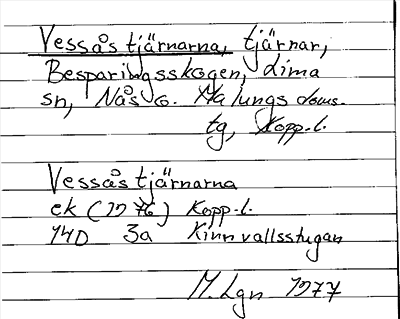 Vessåstjärnarna, tjärnar,
Besparingsskogen, Lima
sn, Nås o. Malungs doms.
tg, Kopp.l.
Vessåstjärnarna
ek (1976) Kopp.l.
14D 3a Kinnvallsstugan
M.Lgn 1977